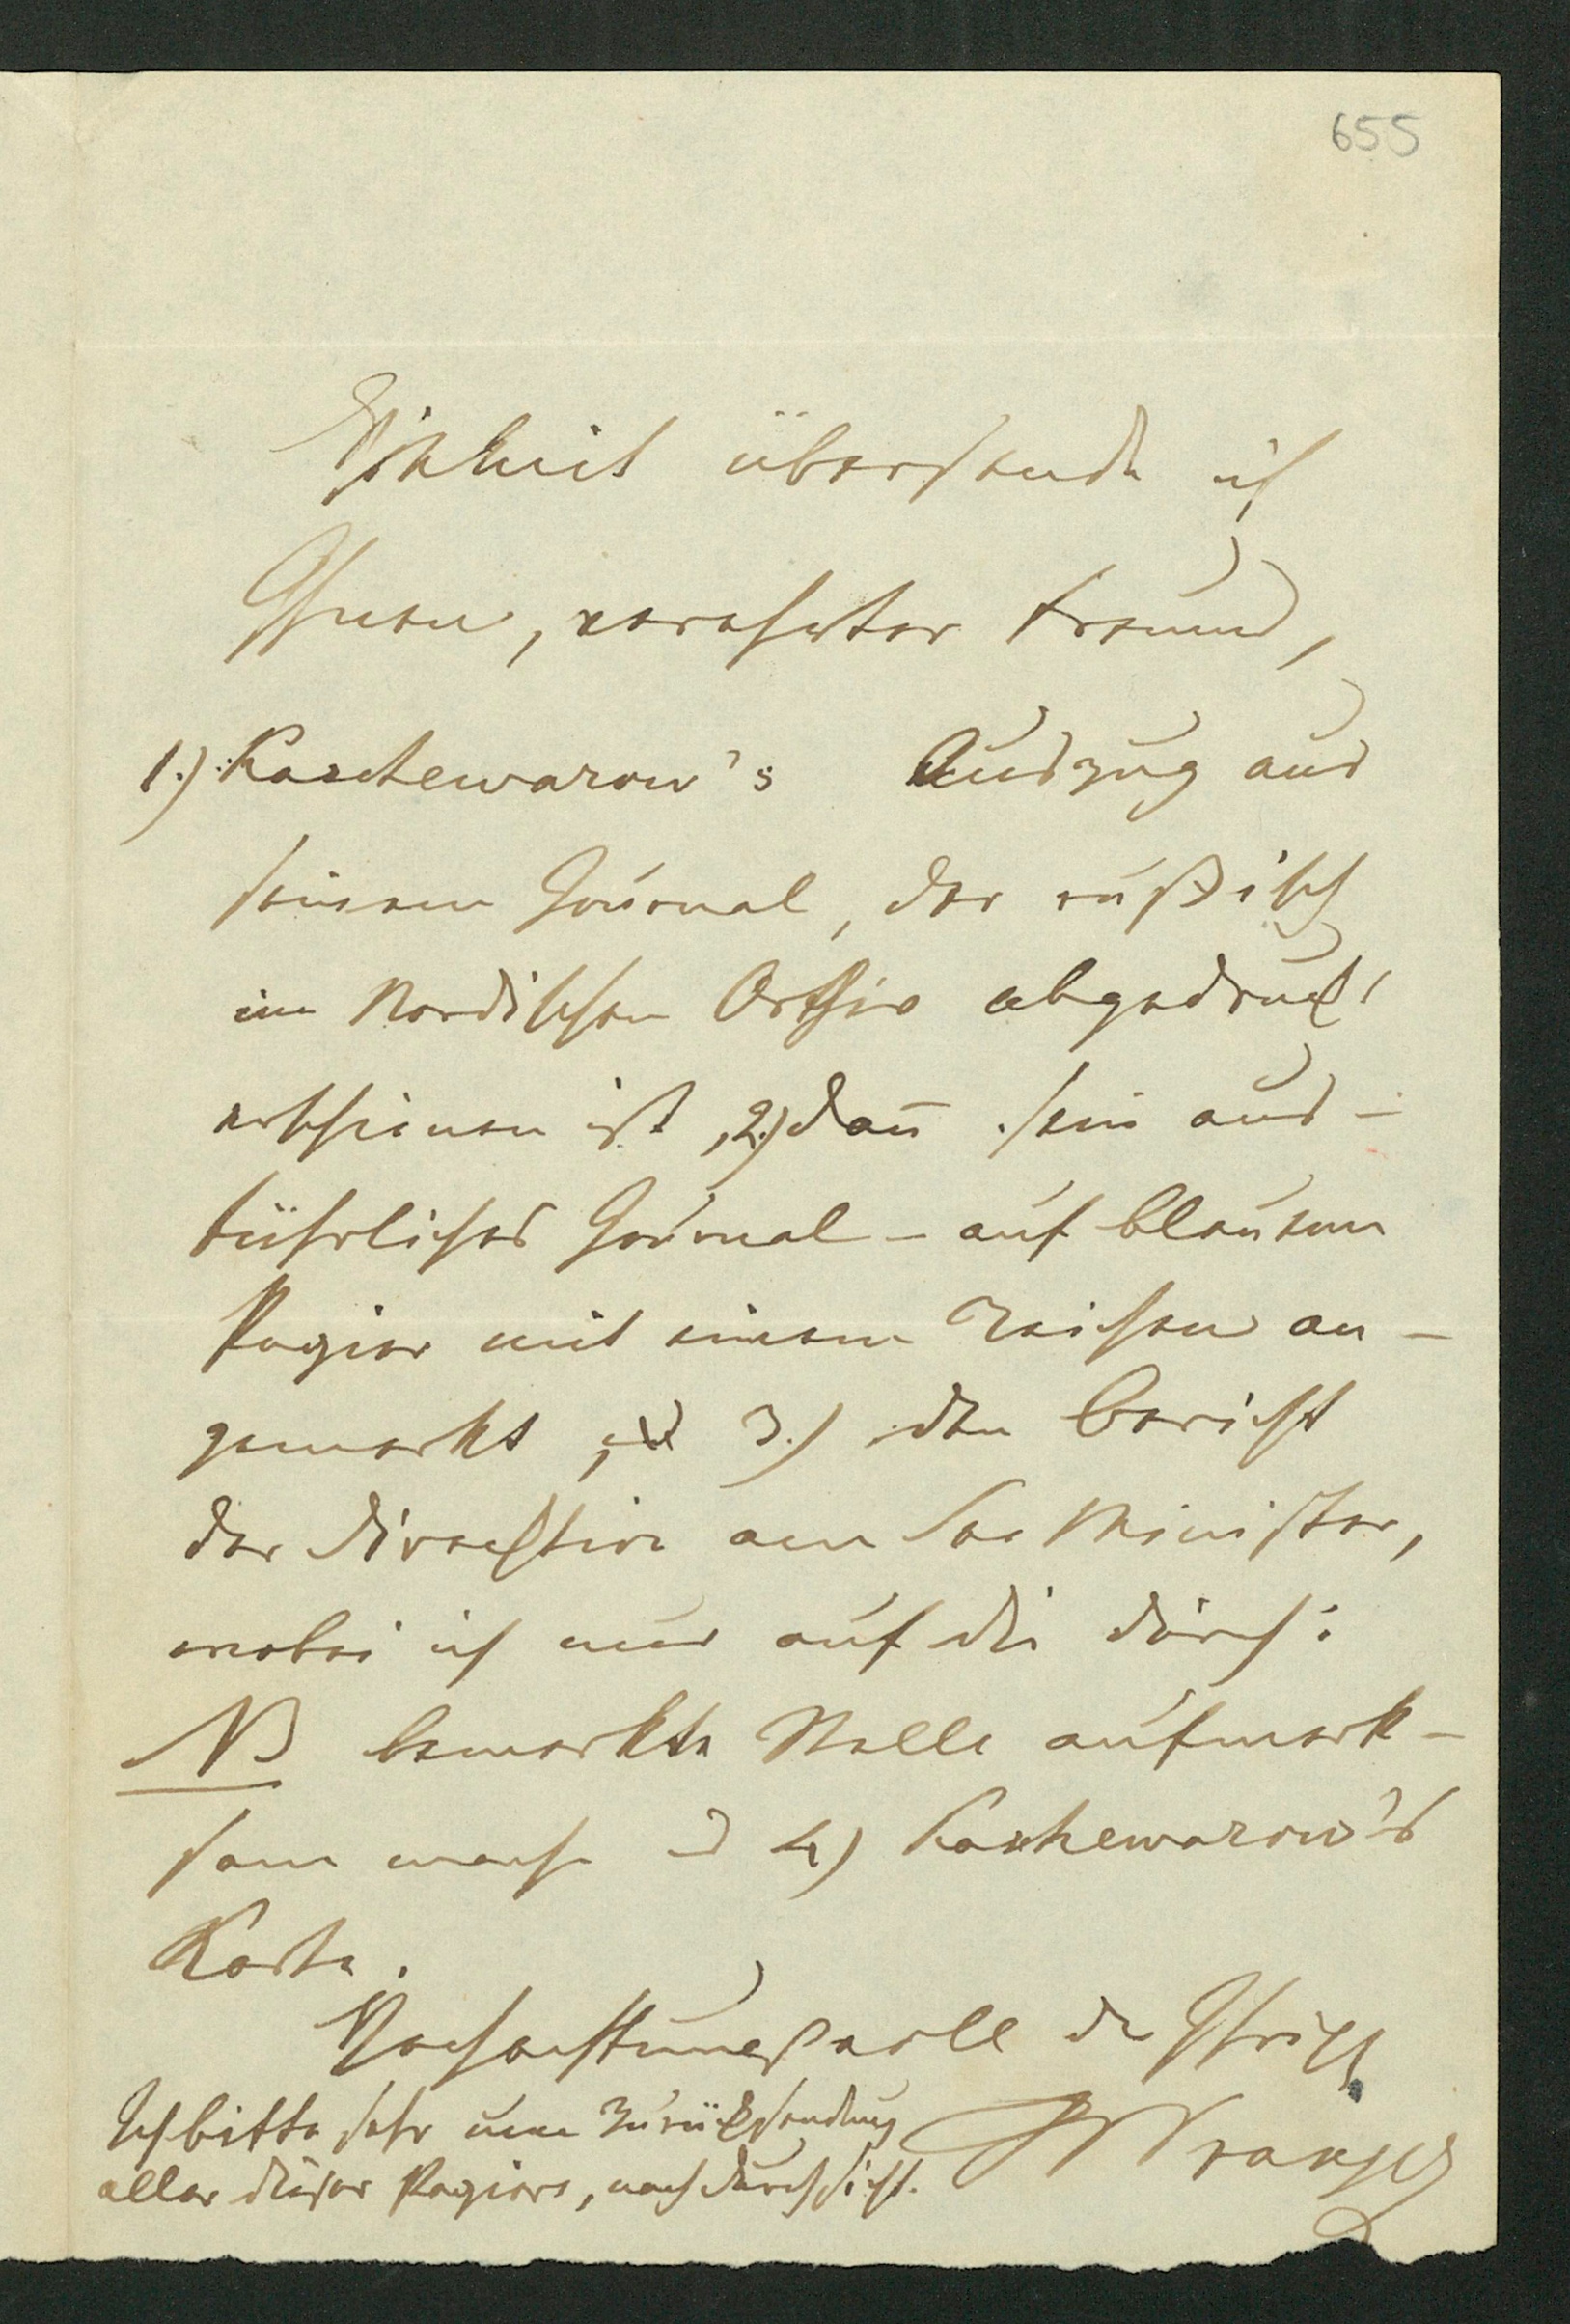 655
Hiemit übersende ich
Ihnen, verehrter Freund,
1.) Kaschewarow's Auszug aus
seinem Journal, der rußisch
im Nordischen Archiv abgedruckt
erschienen ist, 2.) dan̄ sein aus-
führliches Journal - auf blauem
Papier mit einem Zeichen an-
gemerkt, 3.) den Bericht
der Direction am See Minister,
wobei ich nur auf die durch:
NB bemerkte Stelle aufmerk-
sam mache u 4) Kaschewarow's
Karte.
Hochachtungsvoll der Ihrige
Ich bitte sehr um Zurücksendung
aller dieser Papiere, nach Durchsicht.
Wrangell